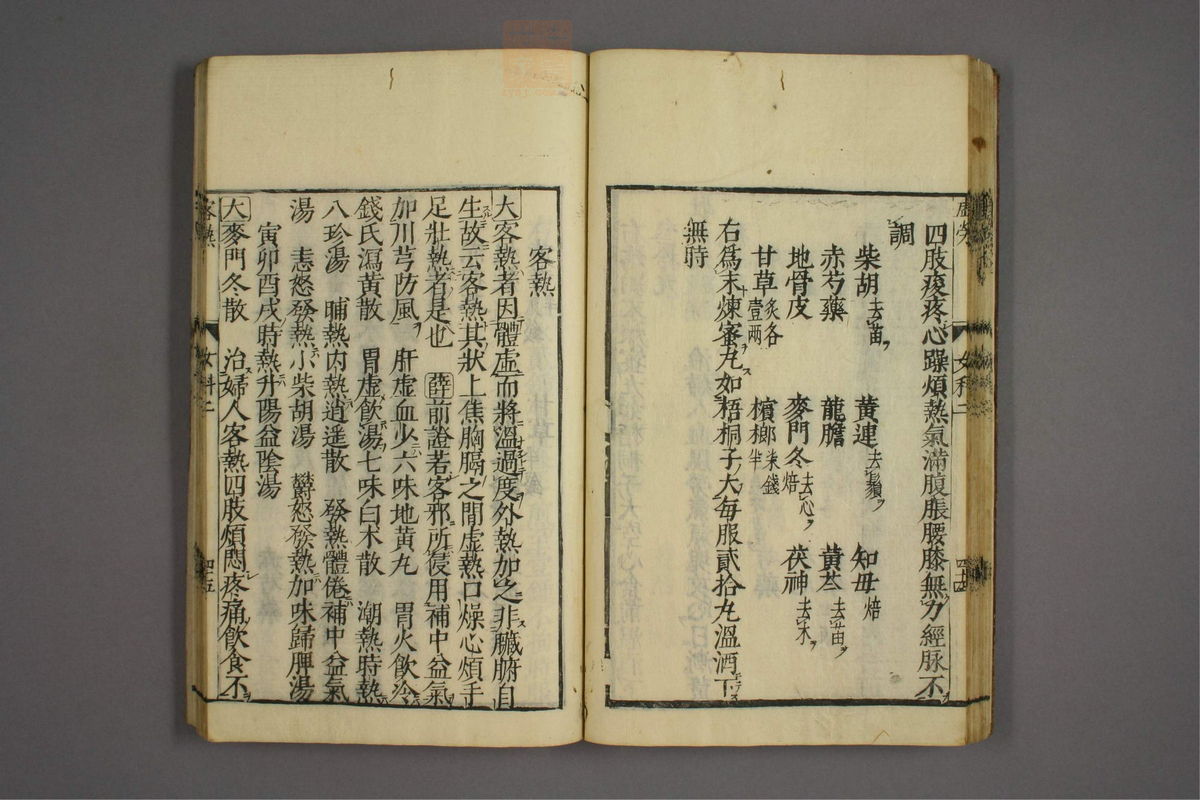 四肢痠疼心躁煩熱氣滿腹脹腰膝無力經脉不
調
柴胡去苗 黃連去鬚 知母焙
赤芍藥 龍膽 黃芩去苗
地骨皮 麥門冬去心焙 茯神去木
甘草炙各壹兩 檳榔半
右爲末煉蜜丸如梧桐子大每服貳拾丸溫酒下
無時
女科二
客熱
大客熱者因體虛而將溫過度外熱加之非臟腑自
生故云客熱其狀上焦胸膈之間虛熱口燥心煩手
足壯熱者是也 薛前證若客邪所侵用補中益氣
加川芎防風 肝虛血少六味地黃丸 胃火飲冷
錢氏瀉黃散 胃虛飲湯七味白木散 潮熱時熱
八珍湯 晡熱內熱逍遥散 發熱體倦補中益氣
湯 恚怒發熱小柴胡湯 欝怒發熱加味歸脾湯
寅卯酉戌時熱升陽益陰湯
大麥門冬散 治婦人客熱四肢煩悶疼痛飲食不
客熱 女科二 四五